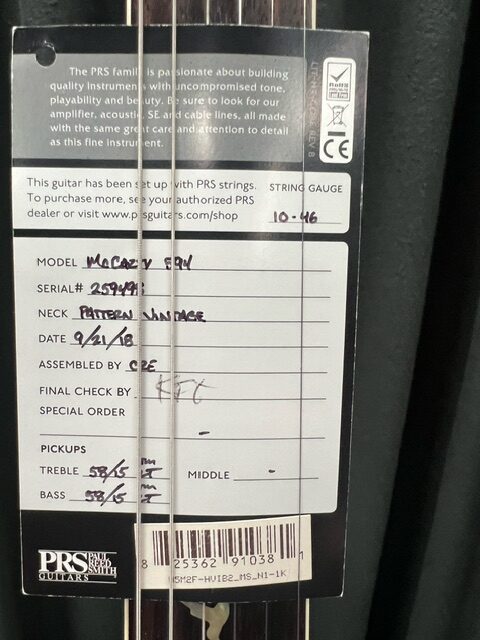 The PRS family is passionate about building
quality instruments with uncompromised tone,
playability and beauty. Be sure to look for our
amplifier, acoustic, SE and cable lines, all made
with the same great care and attention to detail
as this fine instrument.
RoHS
CE
REV 8
This guitar has been set up with PRS strings.
To purchase more, see your authorized PRS
dealer or visit www.prsguitars.com/shop
STRING GAUGE
10-46
MODEL McCarty 594
SERIAL# 259495
NECK PATTERN VINTAGE
DATE 9/21/18
ASSEMBLED BY CRE
FINAL CHECK BY
SPECIAL ORDER -
PICKUPS
TREBLE 58/15 LT TM
MIDDLE -
BASS 58/15 LT TM
PRS PAUL REED SMITH
GUITARS
8 25362 91038 1
M5M2F-HVIB2_MS_N1-1K